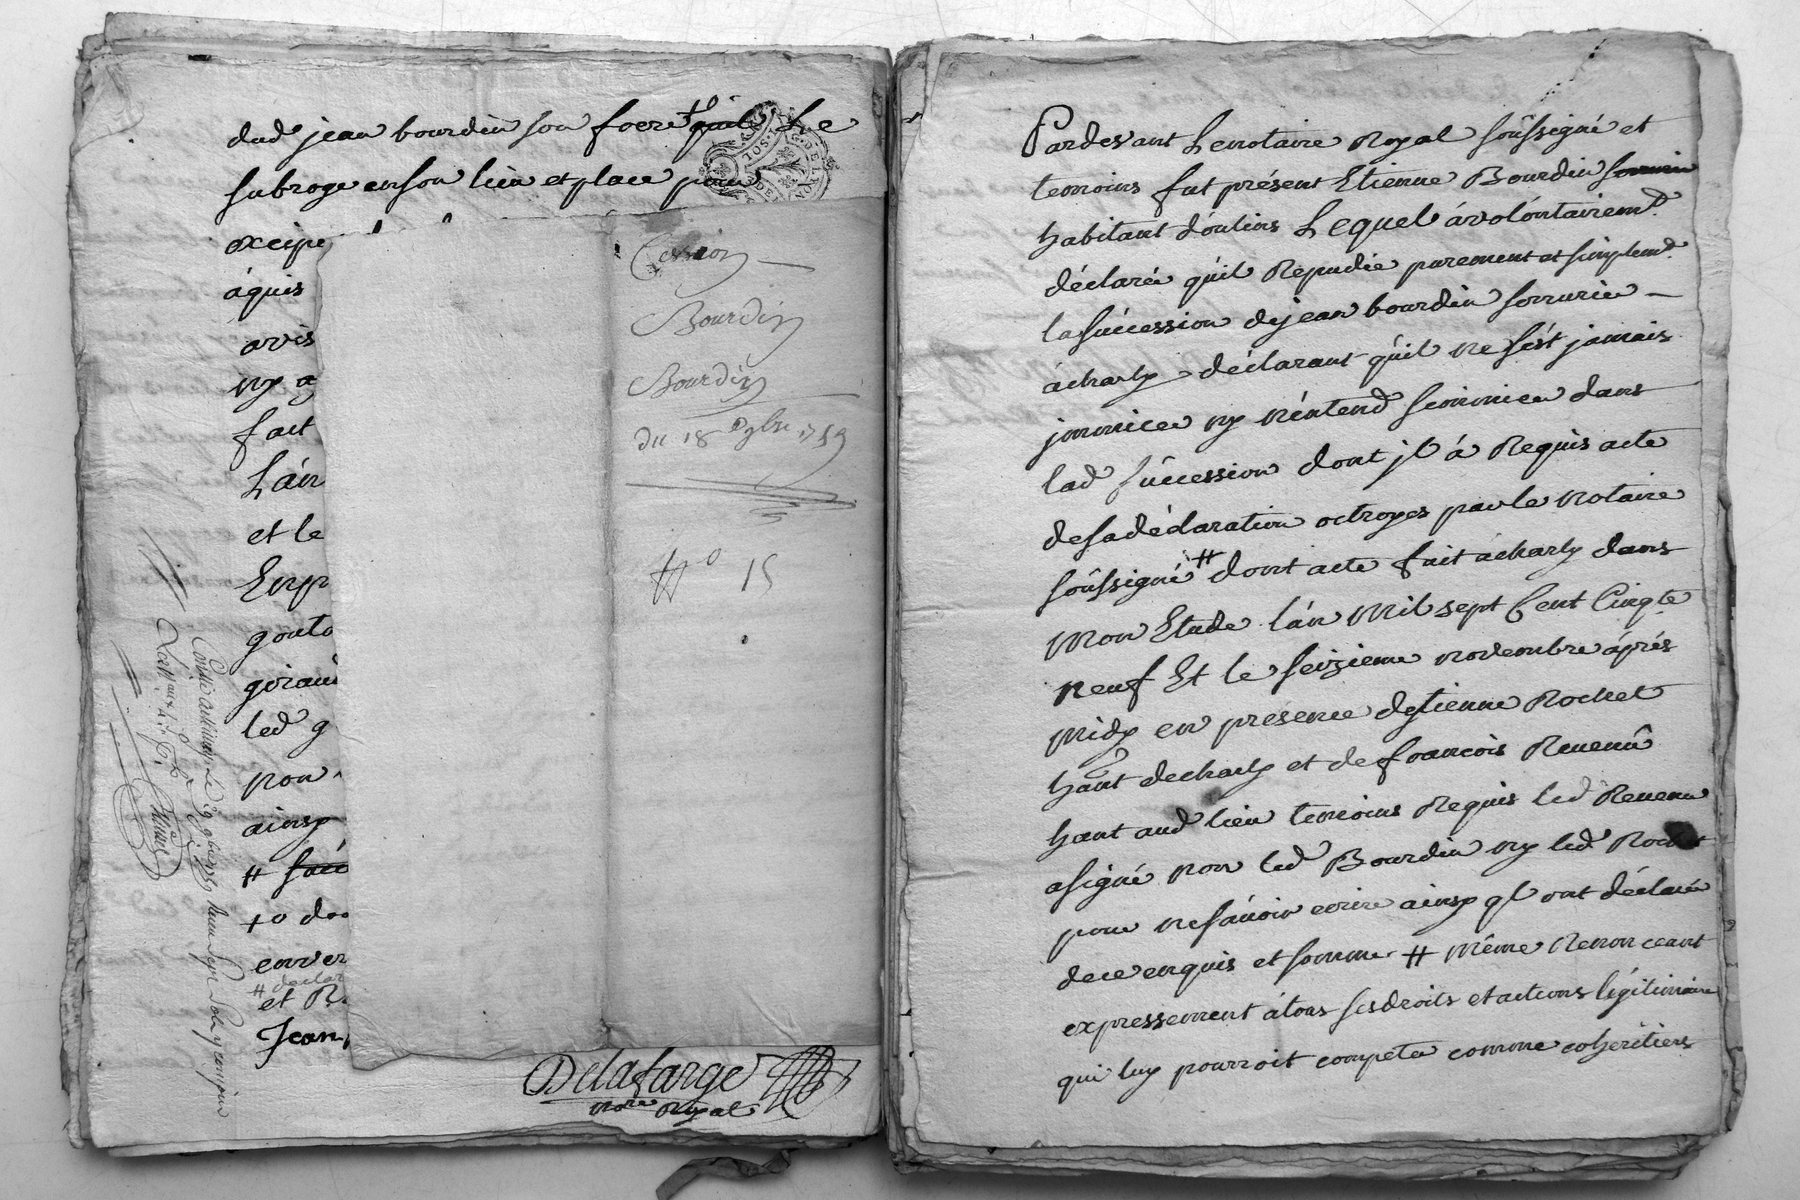 dud jean bourdin son frere quil Le
subroge enson lieu et place pour
excipe
áquis
avis
ny a
fait
Lán
et le
Enpr
gouto
giraud
led g
non
ainsy
# suc
+o do
enver
# declar
et R
Jean
Delafarge
nore Royal
Cession
Bourdin
Bourdin
du 18 9bre 1759
No 15
Controllé
GDELYON
SOL
Pardevant Lenotaire Royal soussigné et
temoins fut présent Etienne Bourdin
habitant d'oulins Lequel ávolóntairemt
déclaré quil Repudie purement et simplemt
la súccession dejean bourdin serrurier
ácharly déclarant quil ne sést jamais
jmmicee ny nêntend simmicer dans
lad súccession dont jl á Requis acte
desadéclaration octroyes parle notaire
soussigné # dont acte fait ácharly dans
mon Etude lán mil sept Cent Cinqte
neuf Et le seizieme novembre áprés
midy en presence d'etienne Rochet
hant decharly et defrancois Revenû
hant aud lieu temoins Requis led Revenu
asigné non led Bourdin ny led Rochet
pour nesávoir ecrire ainsy ql ont déclaré
dece enquis et sommes # même Renonceant
expressement átous sesdroits etactions légitimaire
qui luy pourroit competer comme cohéritiers